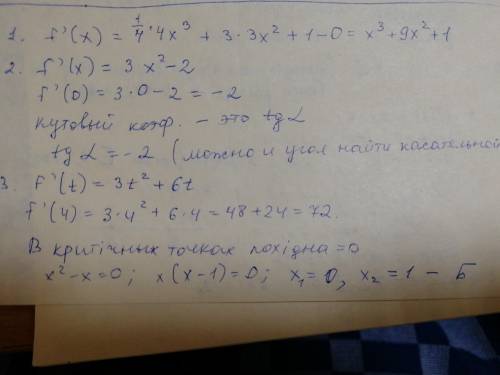 1. f'(x) = 1/4 · 4x³ + 3 · 3x² + 1 - 0 = x³ + 9x² + 1
2. f'(x) = 3x² - 2
f'(0) = 3 · 0 - 2 = -2
кутовый коэф. - это tg α
tg α = -2 (можно и угол найти касательной
3. f'(t) = 3t² + 6t
f'(4) = 3 · 4² + 6 · 4 = 48 + 24 = 72.
В критічных точках похідна = 0
x² - x = 0; x(x - 1) = 0; x₁ = 0, x₂ = 1 - Б